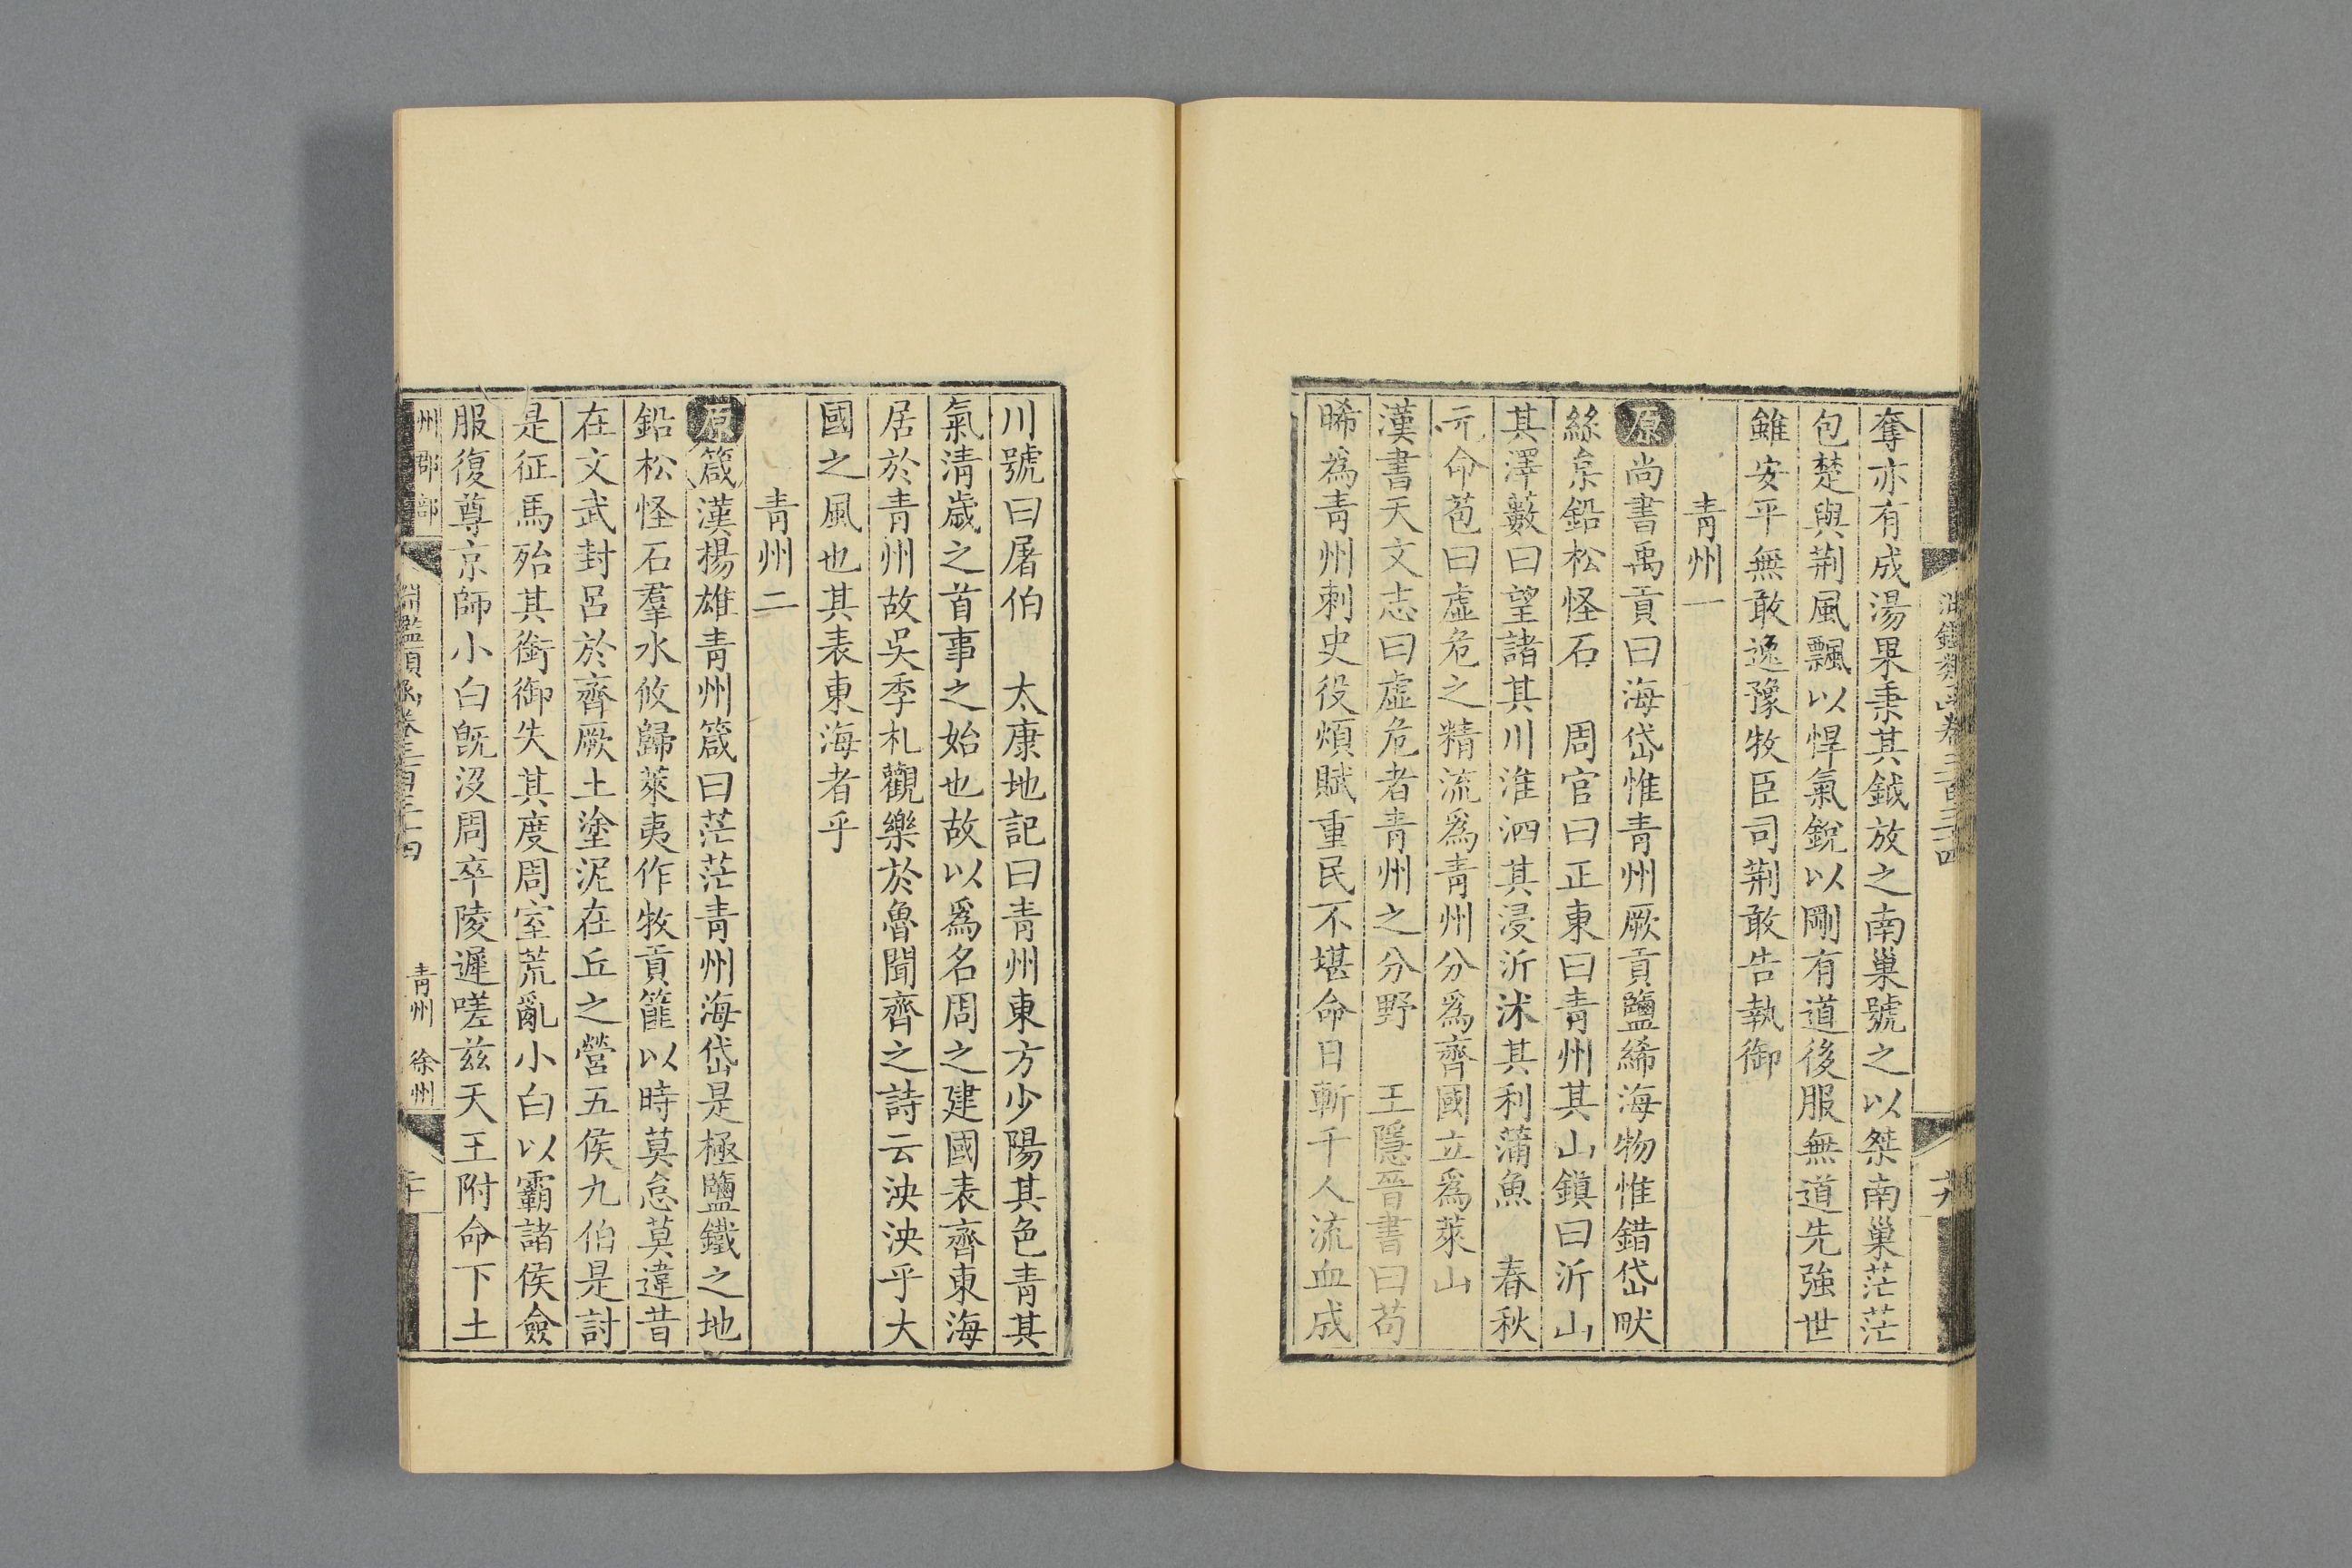 淵鑑類函卷三百三十四
十九
奪亦有成湯果秉其鉞放之南巢號之以桀南巢茫茫
包楚與荆風飄以悍氣銳以剛有道後服無道先強世
雖安平無敢逸豫牧臣司荆敢告執御
青州一
原尚書禹貢曰海岱惟青州厥貢鹽絺海物惟錯岱畎
絲枲鉛松怪石　周官曰正東曰青州其山鎮曰沂山
其澤藪曰望諸其川淮泗其浸沂沭其利蒲魚　春秋
元命苞曰虛危之精流爲青州分爲齊國立爲萊山
漢書天文志曰虛危者青州之分野　王隱晉書曰苟
晞為青州刺史役煩賦重民不堪命日斬千人流血成
川號曰屠伯　太康地記曰青州東方少陽其色青其
氣淸歲之首事之始也故以爲名周之建國表齊東海
居於青州故吳季札觀樂於魯聞齊之詩云泱泱乎大
國之風也其表東海者乎
青州二
原箴漢楊雄青州箴曰茫茫青州海岱是極鹽鐵之地
鉛松怪石羣水攸歸萊夷作牧貢篚以時莫怠莫違昔
在文武封呂於齊厥土塗泥在丘之營五侯九伯是討
是征馬殆其銜御失其度周室荒亂小白以霸諸侯僉
服復尊京師小白旣没周卒陵遲嗟兹天王附命下土
州郡部
淵鑑類函卷三百三十四
青州　徐州
二十